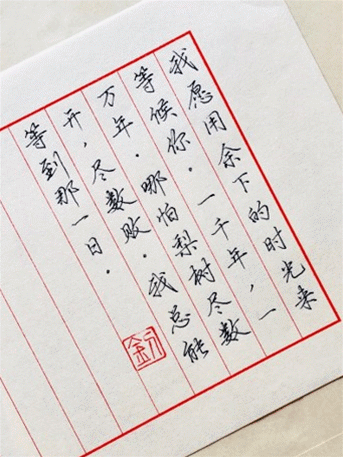 我愿用余下的时光来
等候你.一千年,一
万年.哪怕梨树尽数
开,尽数败.我总能
等到那一日.